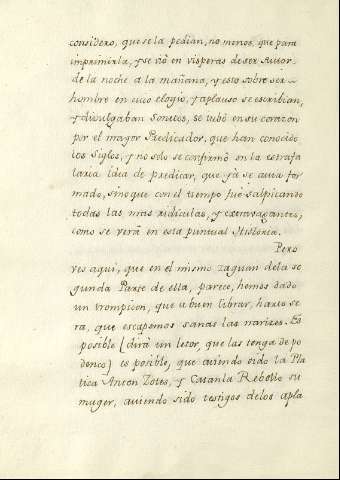 considero, que se la pedian, no menos, que para
imprimirla, y se viò en visperas de ser Autor
de la noche a la mañana, y esto sobre ser
hombre en cuio elogio, y aplauso se escribian,
y divulgaban Sonetos, se tubò en su corazon
por el mayor Predicador, que han conocido
los Siglos, y no solo se confirmò en la estrafa
laria idea de predicar, que yà se avia for
mado, sino que con el tiempo fuè salpicando
todas las mas ridiculas, y extravagantes,
como se verà en esta puntual Historia.
Pero
ves aqui, que en el mismo zaguan de la se
gunda Parte de ella, parece, hemos dado
un trompicon, que a buen librar, harto se
ra, que escapemos sanas las narizes. Es
posible (dirà un letor, que las tenga de po
denco) es posible, que aviendo oido la Pla
tica Anton Zotes, y Catanla Rebollo su
muger, aviendo sido testigos delos apla